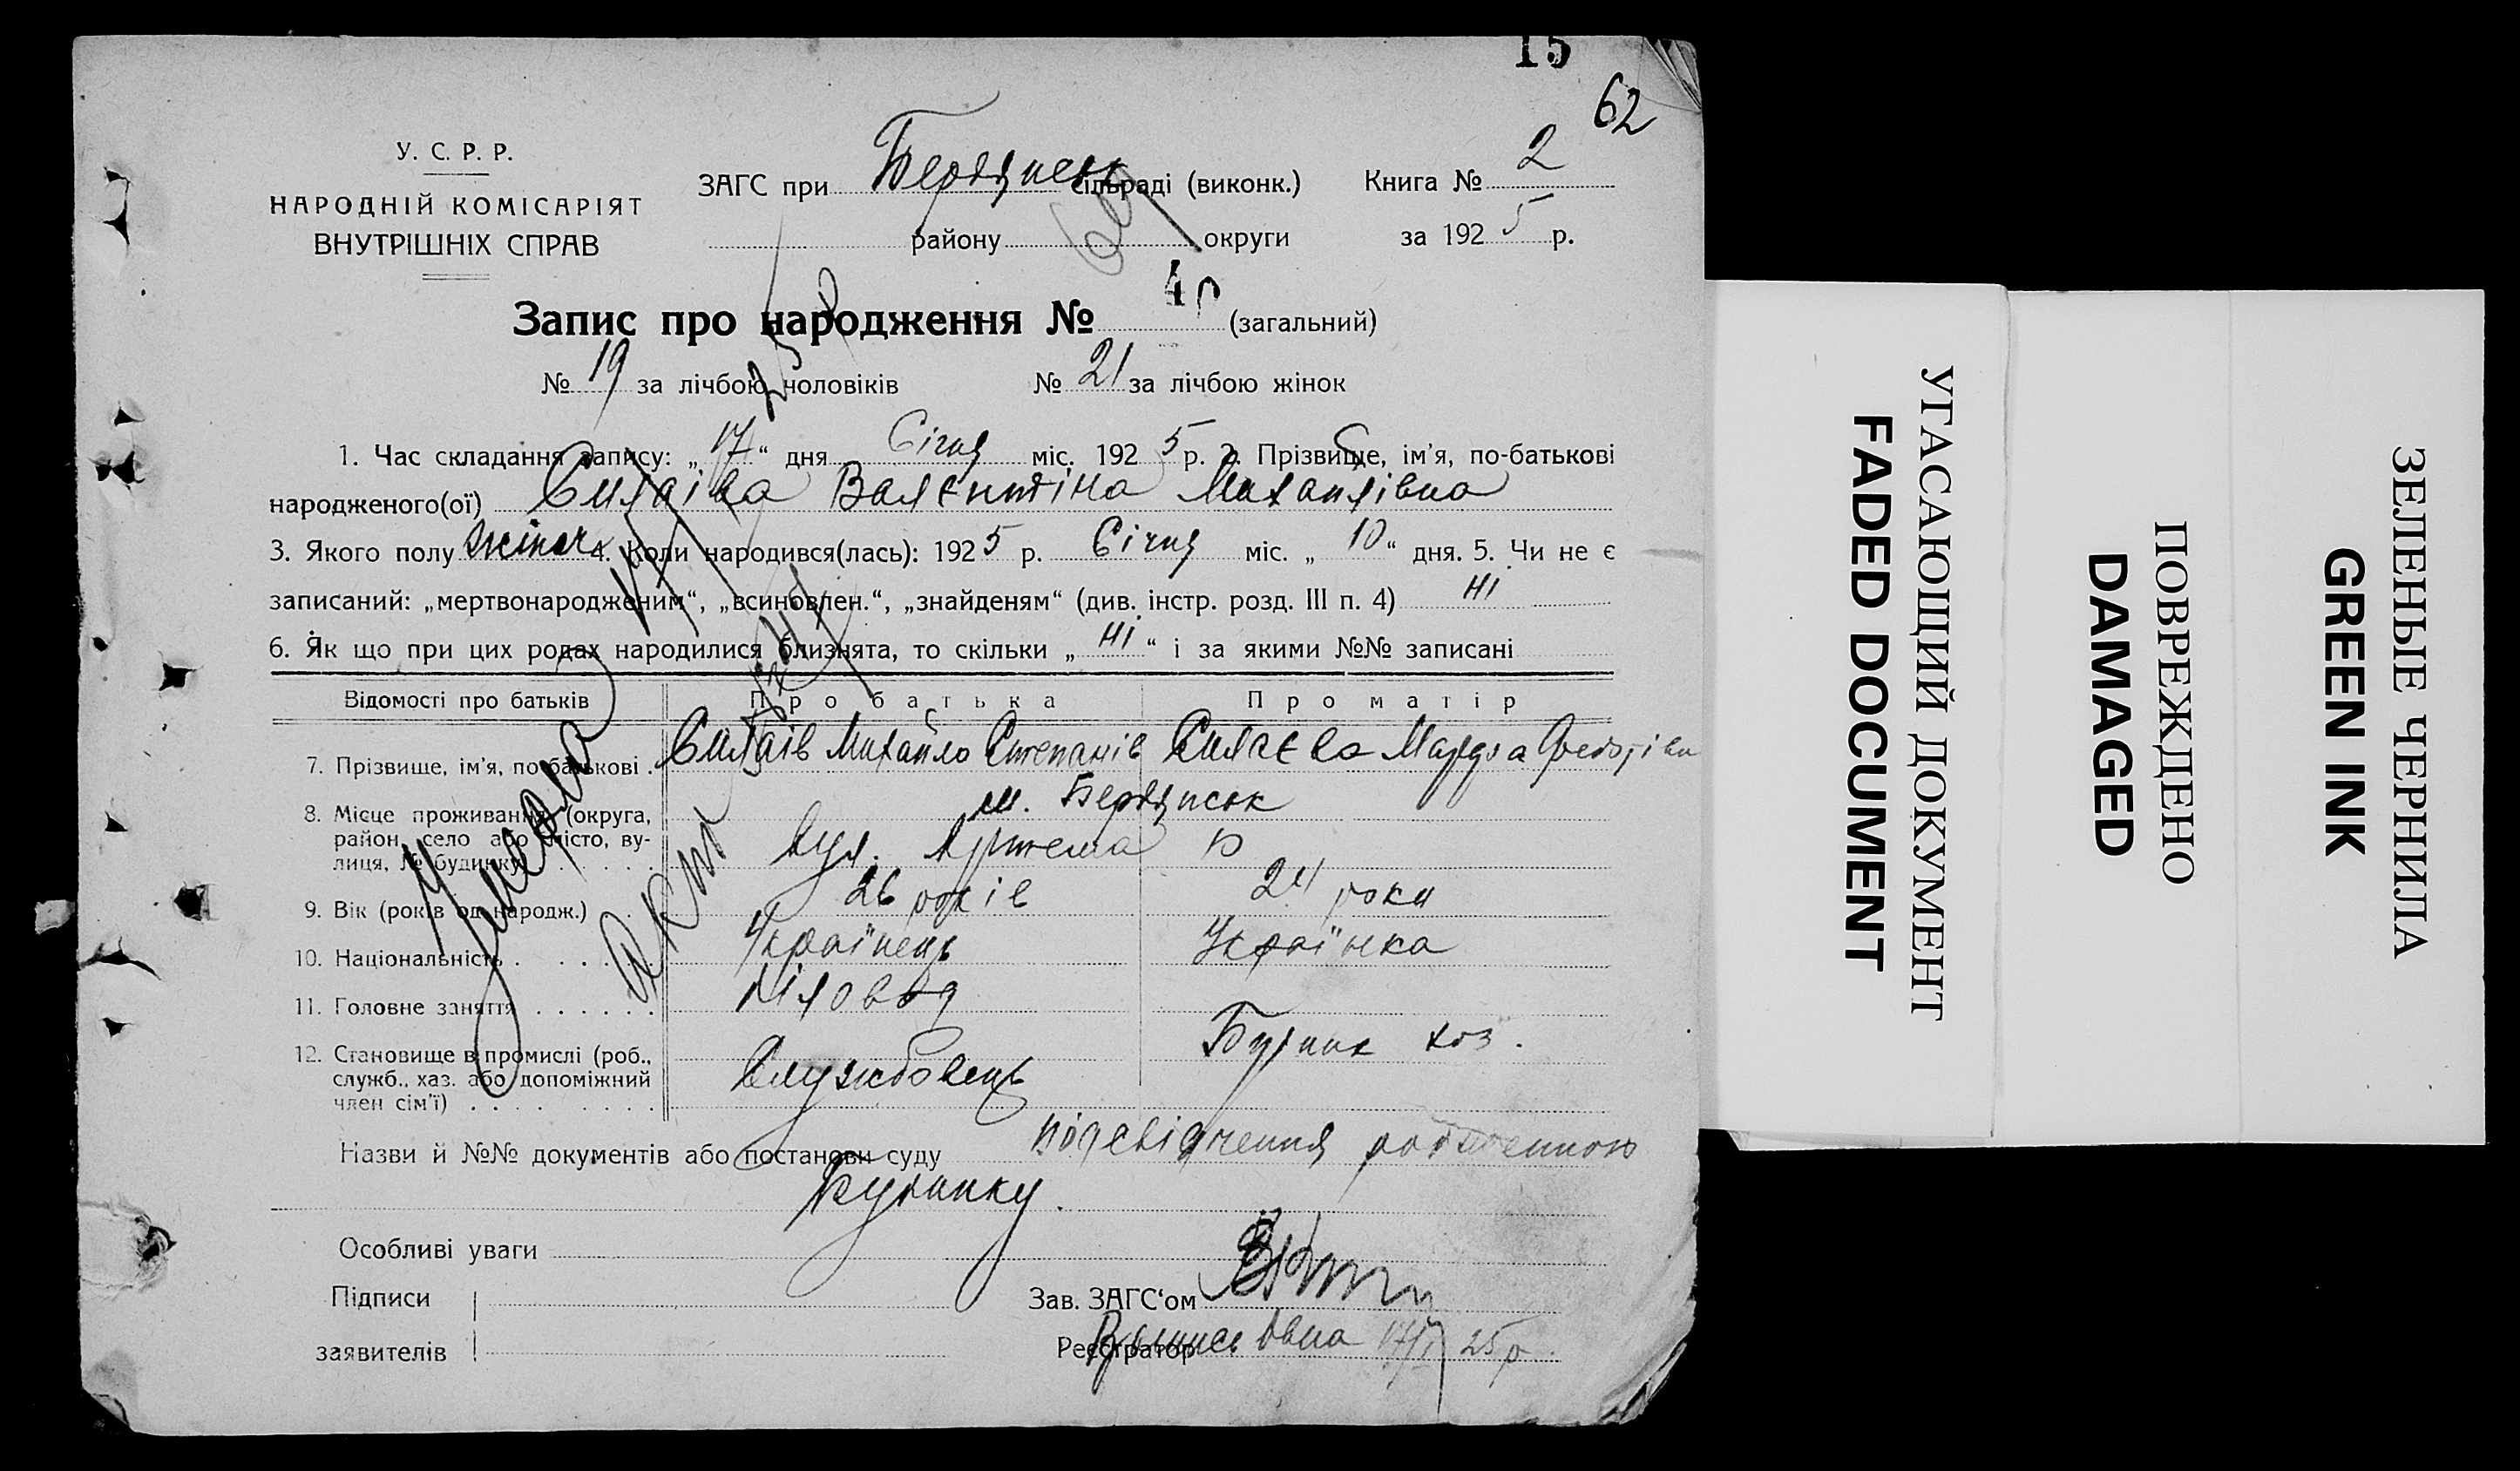 15
62
У. С. Р. Р.
НАРОДНІЙ КОМІСАРІЯТ
ВНУТРІШНІХ СПРАВ
ЗАГС при Бердянськ сільраді (виконк.) Книга № 2
району округи за 1925 р.
Запис про народження № 40 (загальний)
№ 19 за лічбою чоловіків № 21 за лічбою жінок
1. Час складання запису: „17“ дня Січня міс. 1925 р. 2. Прізвище, ім'я, по-батькові
народженого(ої) Силаіва Валєнтіна Михайлівна
3. Якого полу жіноч 4. Коли народився(лась): 1925 р. Січня міс. „10“ дня. 5. Чи не є
записаний: „мертвонародженим“, „всиновлен.“, „знайденям“ (див. інстр. розд. III п. 4) Ні
6. Як що при цих родах народилися близнята, то скільки „Ні“ і за якими №№ записані
Відомості про батьків Про батька Про матір
7. Прізвище, ім'я, по батькові . Силаів Михайло Степанів Силаєва
8. Місце проживання (округа, район, село або місто, вулиця, № будинку) м. Бердянськ
вул. Артема
9. Вік (років од народж.) 26 років 24 роки
10. Національність . . . . . Українець Українка
11. Головне заняття . . . . . . Діловод
12. Становище в промислі (роб., служб., хаз. або допоміжний член сім'ї) . . . . . . . . Службовець
Назви й №№ документів або постанови суду посвідчення
будинку.
Особливі уваги
Підписи
заявителів
Зав. ЗАГС‘ом
Реєстратор 17/I 25 р.
Умерла
Акт
УГАСАЮЩИЙ ДОКУМЕНТ
FADED DOCUMENT
ПОВРЕЖДЕНО
DAMAGED
ЗЕЛЕНЫЕ ЧЕРНИЛА
GREEN INK